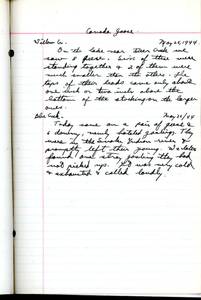 Canada Goose
May 20, 1944
On the lake near Deer Creek we
saw 5 geese. Two of them were
standing together & 2 of them were
much smaller than the others. The
tops of their heads came only about
one inch or two inch above the
bottom of the stocking on the larger
ones.
May 21/44
Today came on a pair of geese &
downy, newly hatched goslings. They
were in the Smoky Indian river &
promptly left their young. We later
found one stray gosling the had
not picked up. It was very cold
& exhausted & called loudly.